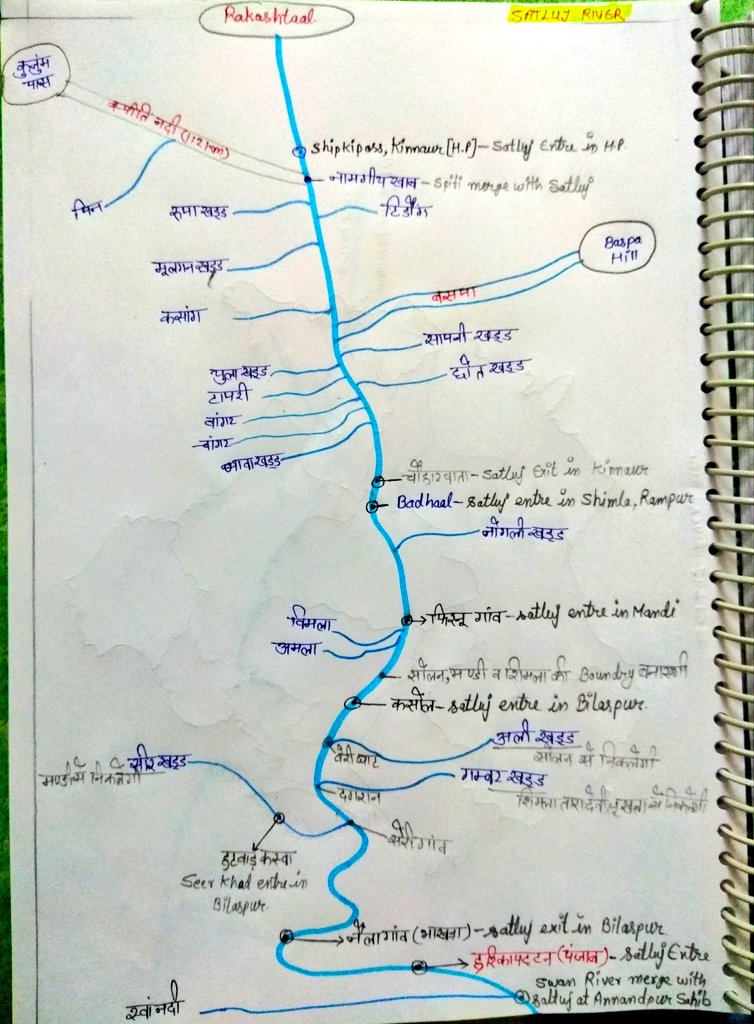 Rakashtaal
SATLUJ RIVER
कुजुंम
पास
स्पीति नदी (112 km)
Shipkipass, Kinnaur [H.P] - Satluj Entre in H.P.
नामगीय खाब - Spiti merge with Satluj
पिन
रूपा खड्ड
टिडोंग
Baspa
Hill
मूलगन खड्ड
बसपा
कसांग
सापनी खड्ड
पुला खड्ड
टापरी
वांगर
वांगर
चौंडारवाता - Satluj Exit in Kinnaur
Badhaal - Satluj entre in Shimla, Rampur
नोगली खड्ड
फिरनू गांव - Satluj entre in Mandi
विमला
अमला
सोलन, मण्डी व शिमला की Boundry बनाएगी
कसोल - Satluj entre in Bilaspur.
अली खड्ड
सोलन से निकलेगी
बेरी घाट
सीर खड्ड
मण्डी से निकलेगी
गम्बर खड्ड
शिमला तारादेवी से निकलेगी
दगरान
सेरी गांव
हटवाड़ कस्बा
Seer Khad entre in
Bilaspur.
नैला गांव (भाखड़ा) - Satluj exit in Bilaspur
(पंजाब) - Satluj Entre
Swan River merge with
Satluj at Annandpur Sahib
स्वां नदी